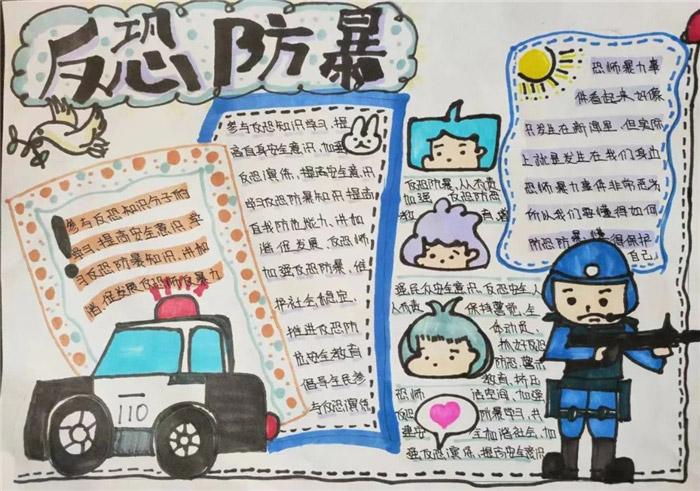 反恐防暴
参与反恐知识句子们
学习提高安全意识,学
习反恐防暴知识,共和
谐,促发展
110
参与反恐知识学习,提
高自身安全意识,加强
反恐演练,提高安全意识
学习反恐防暴知识,提高
自我防范能力,共加
谐,促发展,反恐师
加强反恐防暴,维
护社会稳定,
推进反恐防
范安全教育
倡导全民参
与反恐演练
反恐防暴,人人有责
加强 反恐防范
教 育 遵
强民众安全意识,反恐安全人
人有责 保持警觉,全
体动员,
抓好反恐
防恐警示
教育,挤压
恐师 活空间,加强
反恐 防暴学习,共
建安 全加谐社会,加
强反恐演练,提高安全意识
恐师暴力事
件看起来好像
只发生在新闻里,但实际
上就是发生在我们身边
恐师暴力事件非常
所以我们要懂得如何
防恐防暴,懂得保护
自己